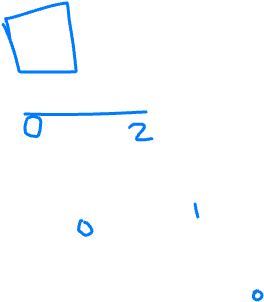 0 2
0 1
0